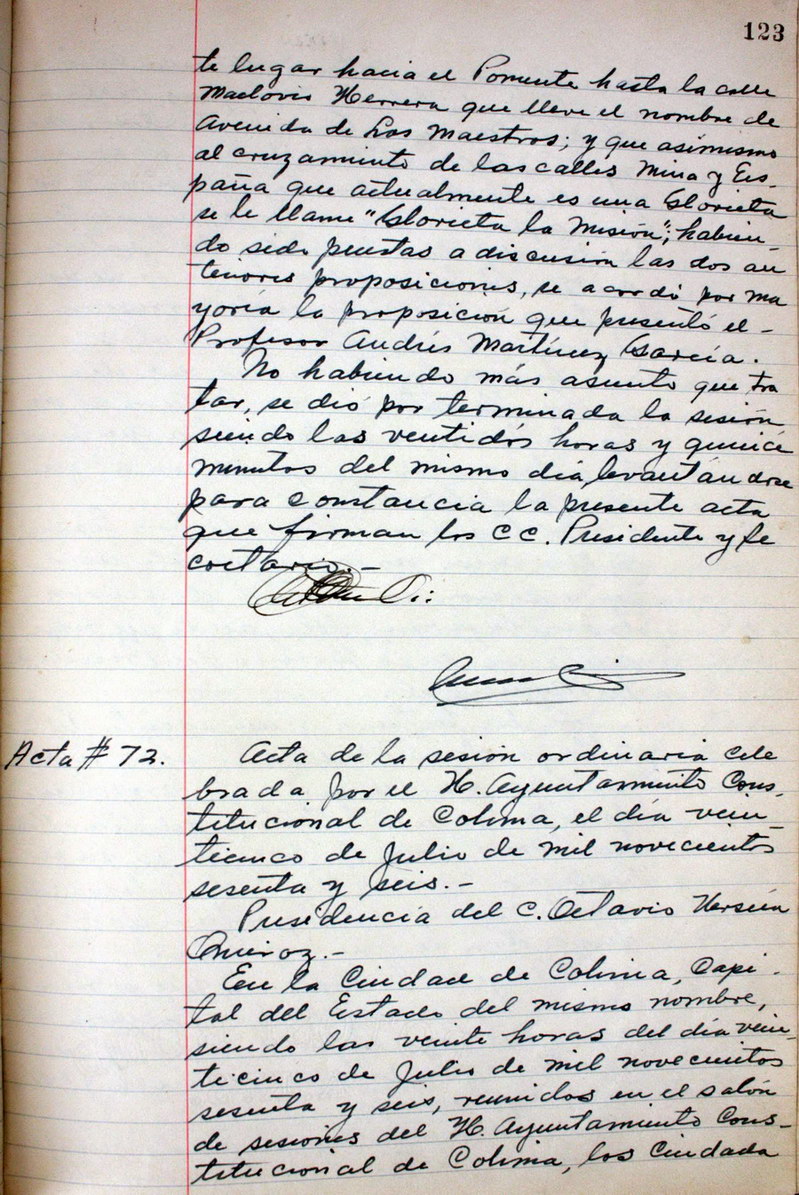 123
te lugar hacia el Poniente hasta la calle
Maclovio Herrera que lleve el nombre de
Avenida de Los Maestros; y que asimismo
al cruzamiento de las calles Mina y Es-
paña que actualmente es una Glorieta
se le llame "Glorieta la Misión"; habien-
do sido puestas a discusión las dos an
teriores proposiciones, se acordó por ma
yoría la proposición que presentó el -
Profesor Andrés Martínez García.
No habiendo más asunto que tra
tar, se dió por terminada la sesión
siendo las ventidós horas y quince
minutos del mismo día, levantándose
para constancia la presente acta
que firman los C C. Presidente y Se
cretario.-
Acta # 72.
Acta de la sesión ordinaria cele
brada por el H. Ayuntamiento Cons-
titucional de Colima, el día vein-
ticinco de Julio de mil novecientos
sesenta y seis.-
Presidencia del C. Octavio
.-
En la Ciudad de Colima, Capi-
tal del Estado del mismo nombre,
siendo las veinte horas del día vein-
ticinco de Julio de mil novecientos
sesenta y seis, reunidos en el salón
de sesiones del H. Ayuntamiento Cons-
titucional de Colima, los Ciudada